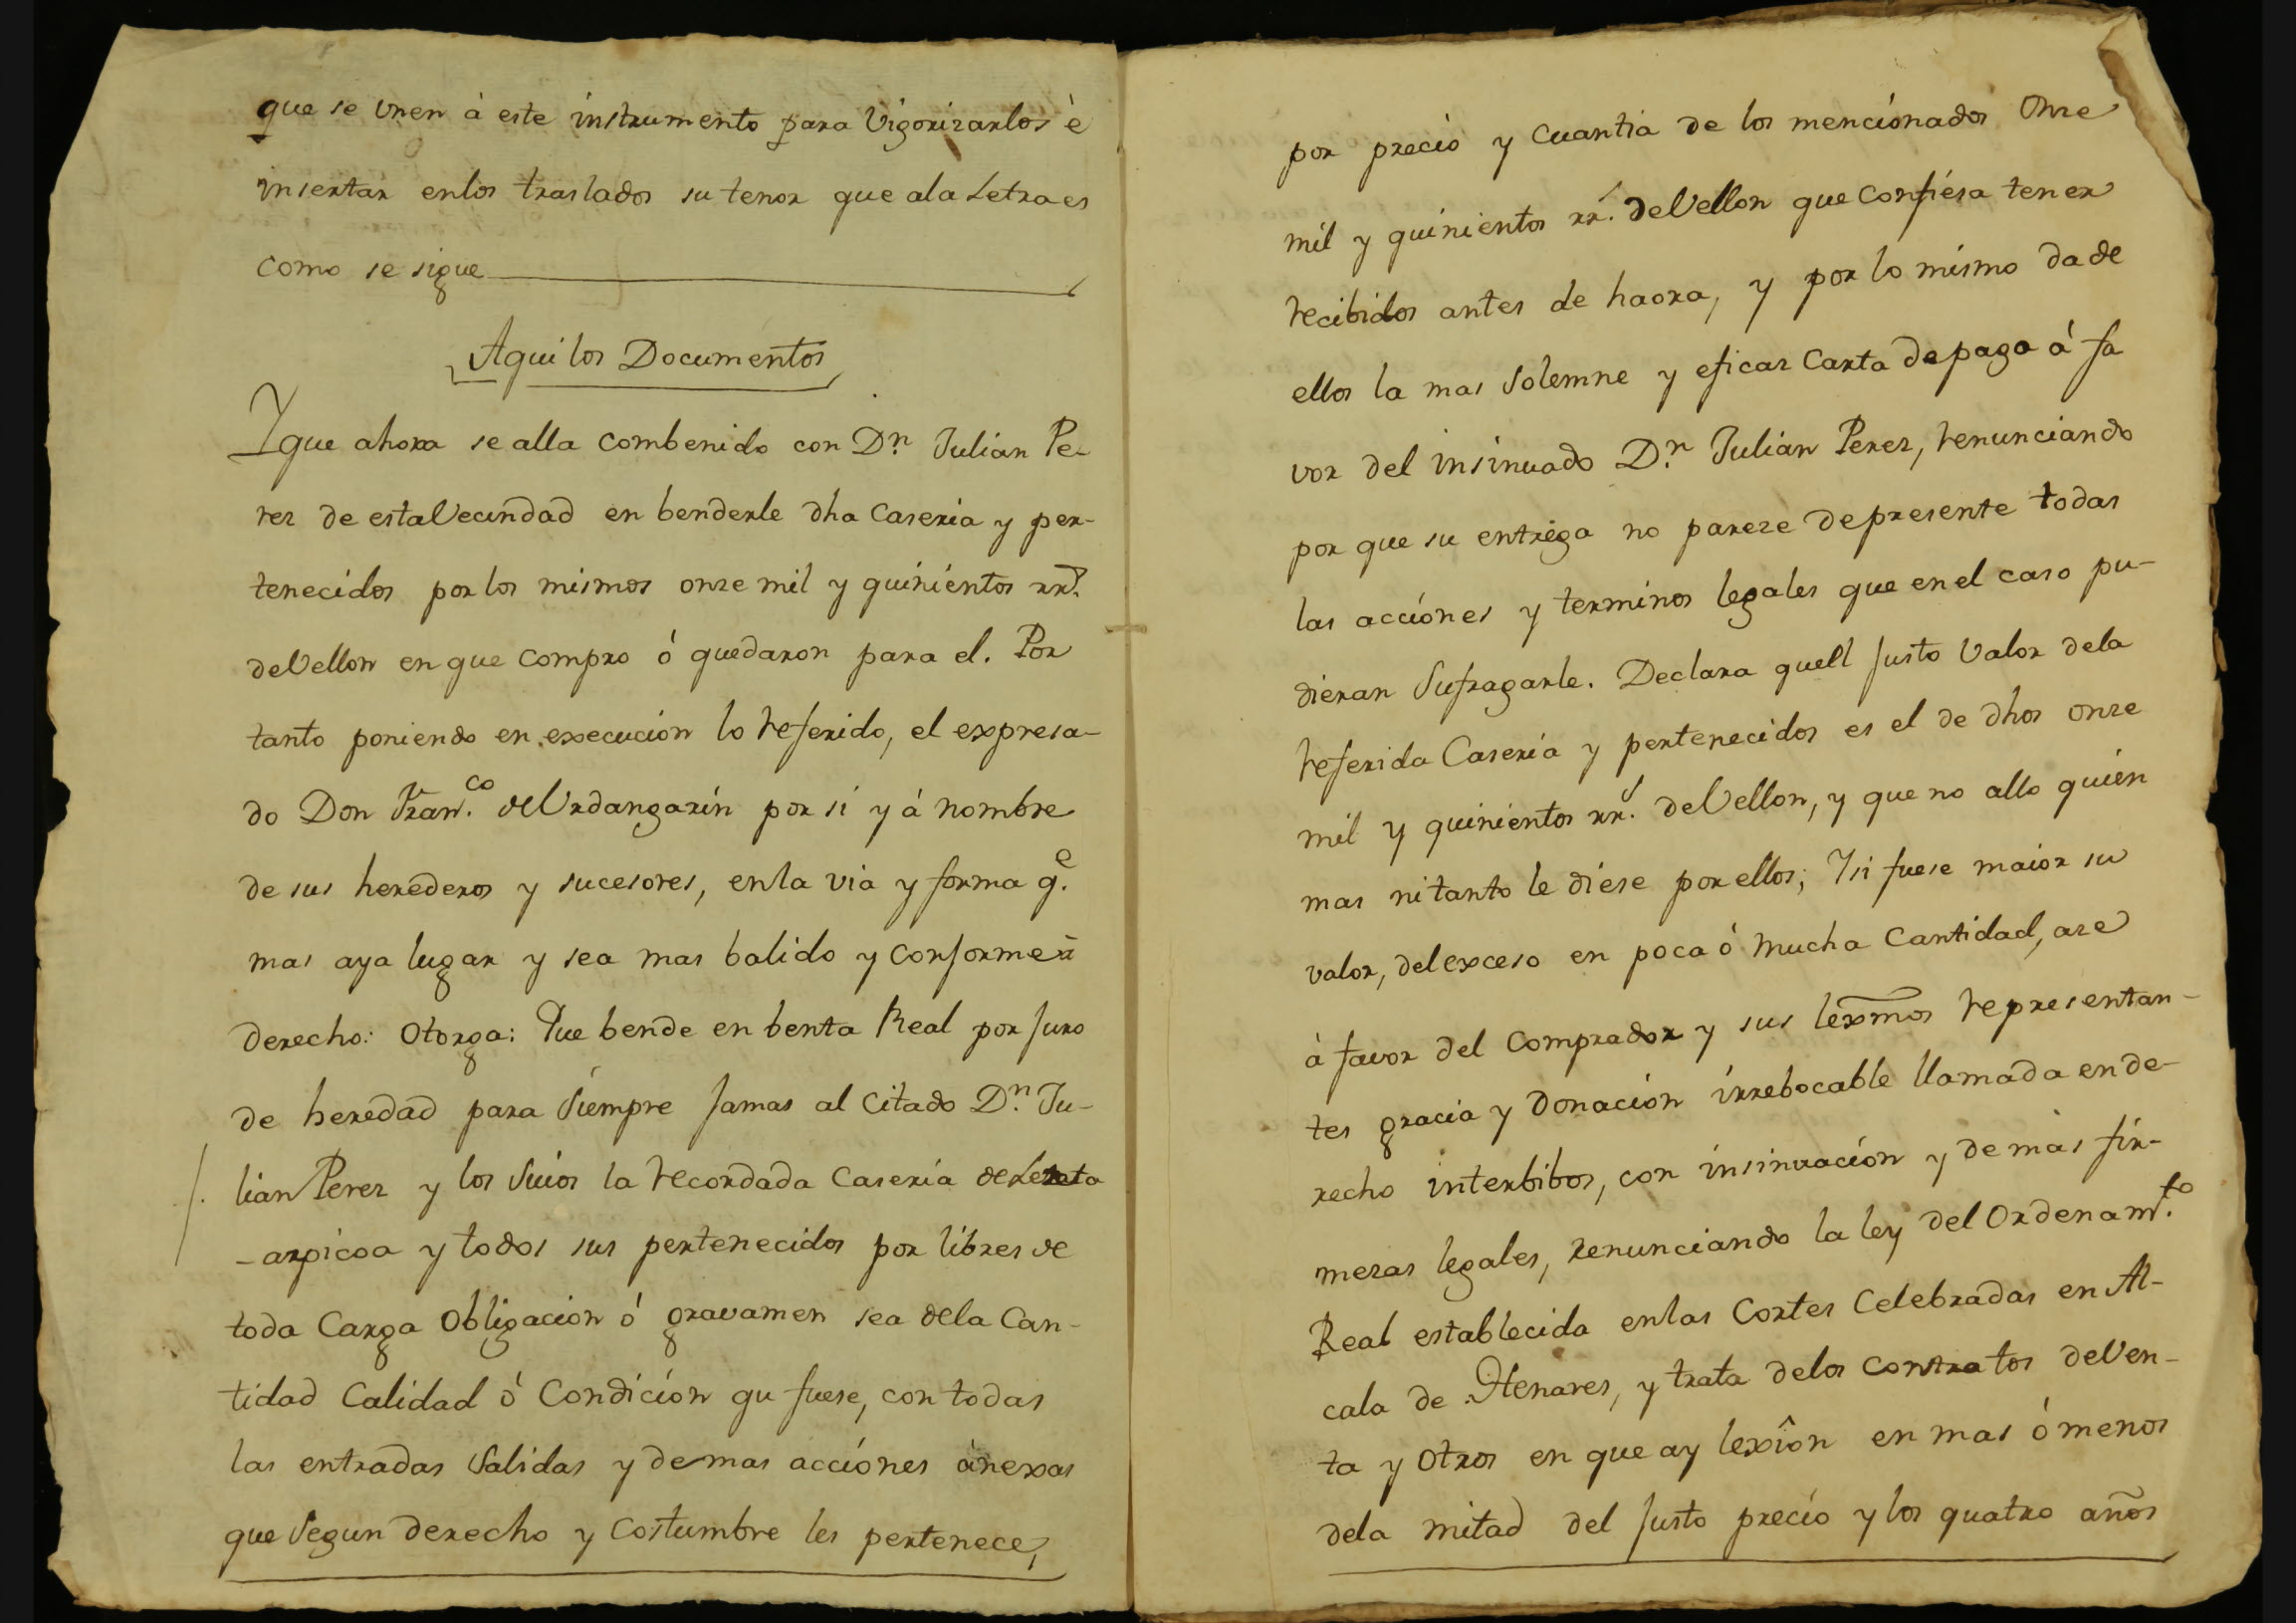 que se vnen à este instrumento para Vigorizarlos è
insertar enlos traslados su tenor que ala Letra es
como se sigue
Aqui los Documentos
Y que ahora se alla combenido con D.n Julian Pe-
rez de esta Vecindad en benderle dha Caseria y per-
tenecidos por los mismos onze mil y quinientos rr.s
de Vellon en que compro ó quedaron para el. Por
tanto poniendo en execucion lo referido, el expresa-
do Don Fran.co de Urdangarin por si y à nombre
de sus herederos y sucesores, enla via y forma q.e
mas aya lugar y sea mas balido y conforme à
derecho: Otorga: Que bende en benta Real por juro
de heredad para Siempre Jamas al Citado D.n Ju-
lian Perez y los Suios la recordada Caseria de
-arpicoa y todos sus pertenecidos por libres de
toda Carga Obligacion ó gravamen sea dela Can-
tidad Calidad ó Condicion qu fuese, con todas
las entradas Salidas y demas acciones ànexas
que Segun derecho y Costumbre les pertenece,
por precio y Cuantia de los mencionados Onze
mil y quinientos rr.s de Vellon que Confiesa tener
recibidos antes de haora, y por lo mismo da de
ellos la mas Solemne y eficaz Carta de pago á fa
vor del insinuado D.n Julian Perez, renunciando
por que su entrega no pareze de presente todas
las acciones y terminos legales que en el caso pu-
dieran Sufragarle. Declara quell Justo Valor dela
referida Caseria y pertenecidos es el de dhos onze
mil y quinientos rr.s de Vellon, y que no allo quien
mas ni tanto le diese por ellos; Y si fuese maior su
valor, del exceso en poca ó mucha Cantidad, aze
à favor del Comprador y sus lexmos representan-
tes gracia y Donacion irrebocable llamada en de-
recho interbibos, con insinuacion y demàs fir-
mezas legales, renunciando la ley del Ordenam.to
Real establecida enlas Cortes Celebradas en Al-
cala de Henares, y trata delos Contratos de Ven-
ta y Otros en que ay lexîon en mas ó menos
dela mitad del Justo precio y los quatro años